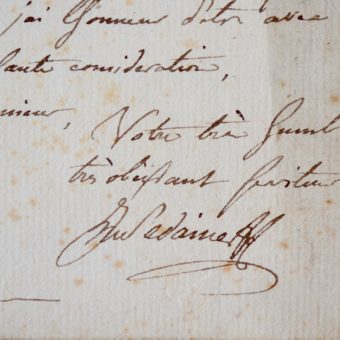 j'ai l'honneur d'etre avec
haute consideration,
Votre très humb
très obéissant serviteur